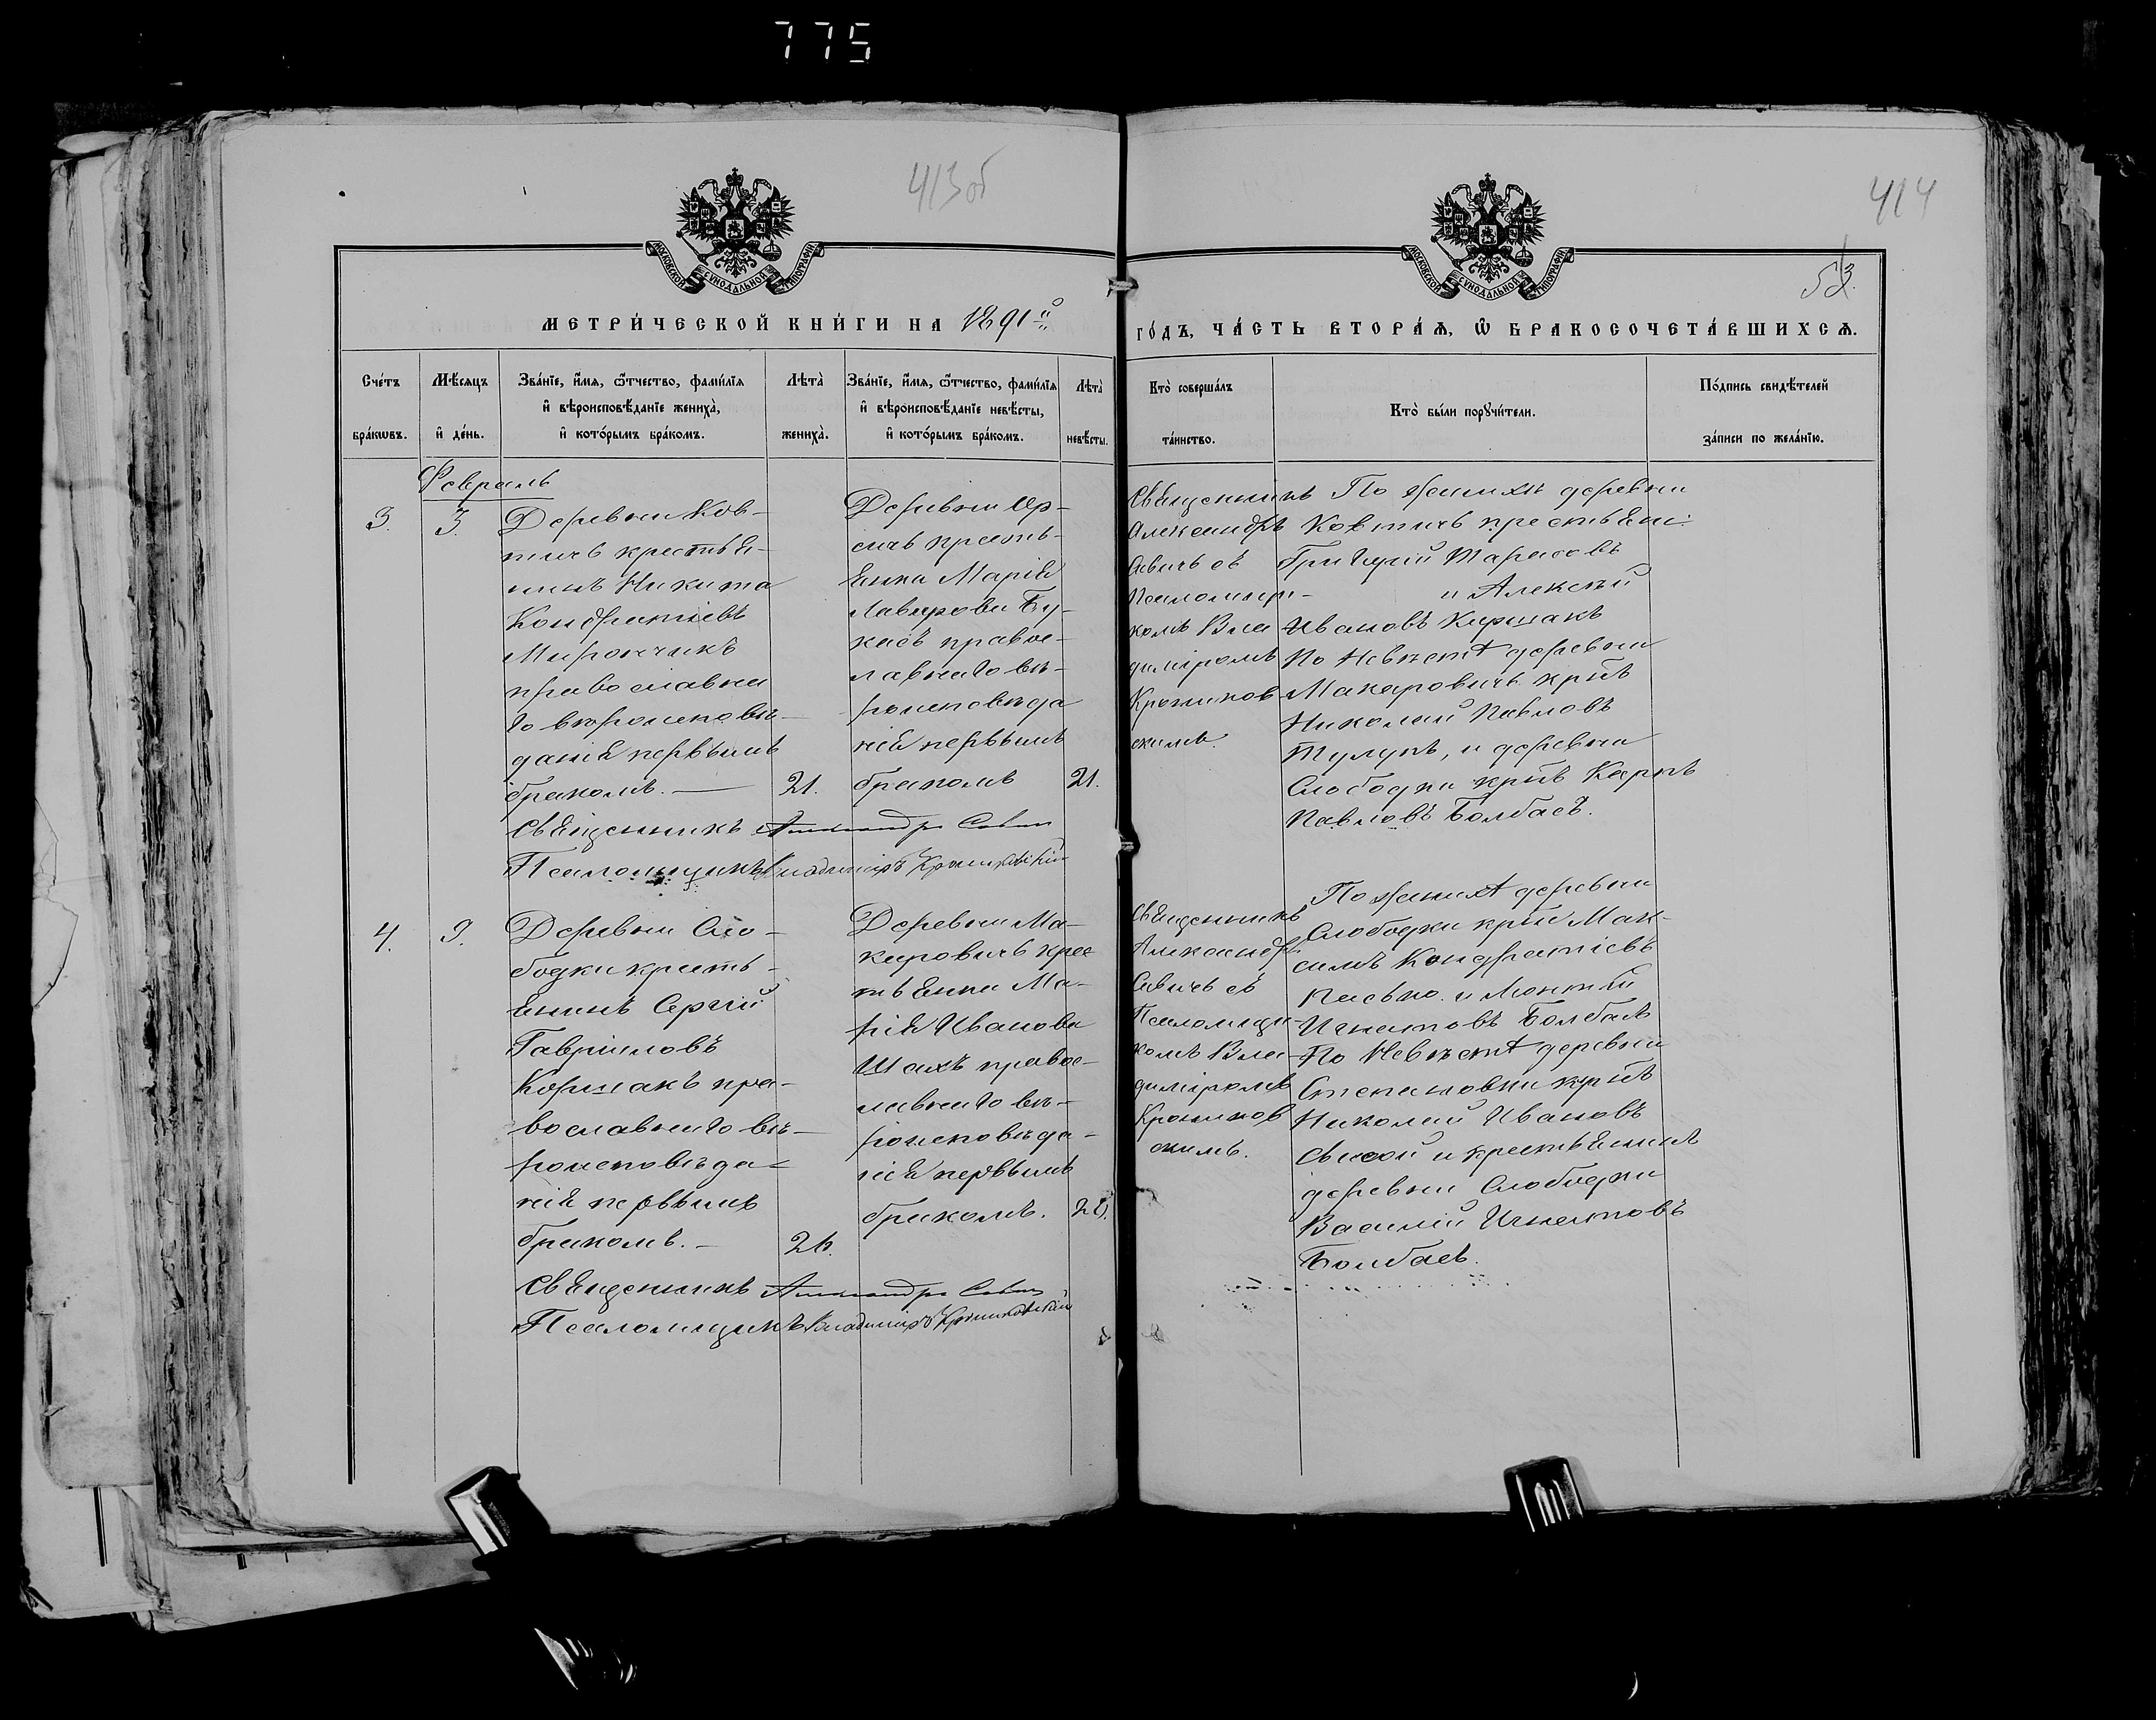 775
413об
414
53.
МОСКОВСКОЙ СѴНОДАЛЬНОЙ ТИПОГРАФІИ
МОСКОВСКОЙ СѴНОДАЛЬНОЙ ТИПОГРАФІИ
МЕТРИ́ЧЕСКОЙ КНИ́ГИ НА 1891й
ГО́ДЪ, ЧА́СТЬ ВТОРА́Ѧ, Ѡ҆ БРАКОСОЧЕТА́ВШИХСѦ.
Сче́тъ
бра́кѡвъ.
Мѣ́сѧцъ
и҆ де́нь.
Зва́нїе, и҆́мѧ, ѻ҆́тчество, фами́лїѧ
и҆ вѣроисповѣ́данїе жениха̀,
и҆ кото́рымъ бра́комъ.
Лѣта̀
жениха̀.
Зва́нїе, и҆́мѧ, ѻ҆́тчество, фами́лїѧ
и҆ вѣроисповѣ́данїе невѣ́сты,
и҆ кото́рымъ бра́комъ.
Лѣта̀
невѣ́сты.
Кто̀ соверша́лъ
та́инство.
Кто̀ бы́ли порꙋчи́тели.
По́дпись свидѣ́телей
за́писи по жела́нїю.
Февраль
3.
3.
Деревни Ков-
тичь крестья-
нинъ Никита
Кондратіевъ
Мирончикъ
православна
го вѣроисповѣ-
данія первымъ
бракомъ. —
21.
Деревни
кресть-
янка Марія
Лаврова Бу-
касъ правос-
лавнаго вѣ-
роисповѣда
нія первымъ
бракомъ
21.
Священникъ
Александръ
Савичь съ
Псаломщи-
комъ Вла
диміромъ
Крошков
скимъ.
По женихѣ деревни
Ковтичь крестьяни:
Григорій Тарасовъ
и Алексѣй
Ивановъ Каршакъ
По невѣстѣ деревни
Макаровичь крнъ
Николай Павловъ
Тулупъ, и деревни
Слободки крнъ Карпъ
Павловъ Болбасъ.
Священникъ Александръ Савич
Псаломщикъ Владиміръ
4.
9.
Деревни Сло-
бодки кресть-
янинъ Сергій
Гавріиловъ
Коршакъ пра-
вославнаго вѣ-
роисповѣда-
нія первымъ
бракомъ. —
Деревни Ма-
каровичь крес
тьянка Ма-
рія Иванова
Шахъ правос-
лавнаго вѣ-
роисповѣда-
нія первымъ
бракомъ.
Священникъ
Александръ
Савичь съ
Псаломщи-
комъ Вла-
диміромъ
скимъ.
По женихѣ деревни
Слободки крнъ Мак-
симъ Кондратіевъ
Пасько. и
Игнатовъ Болбасъ
По невѣстѣ деревни
Степановки крнъ
Николай Ивановъ
и крестьянинъ
деревни Слободки
Василій Игнатовъ
Болбасъ.
Священникъ Александръ Савич
Псаломщикъ Владиміръ